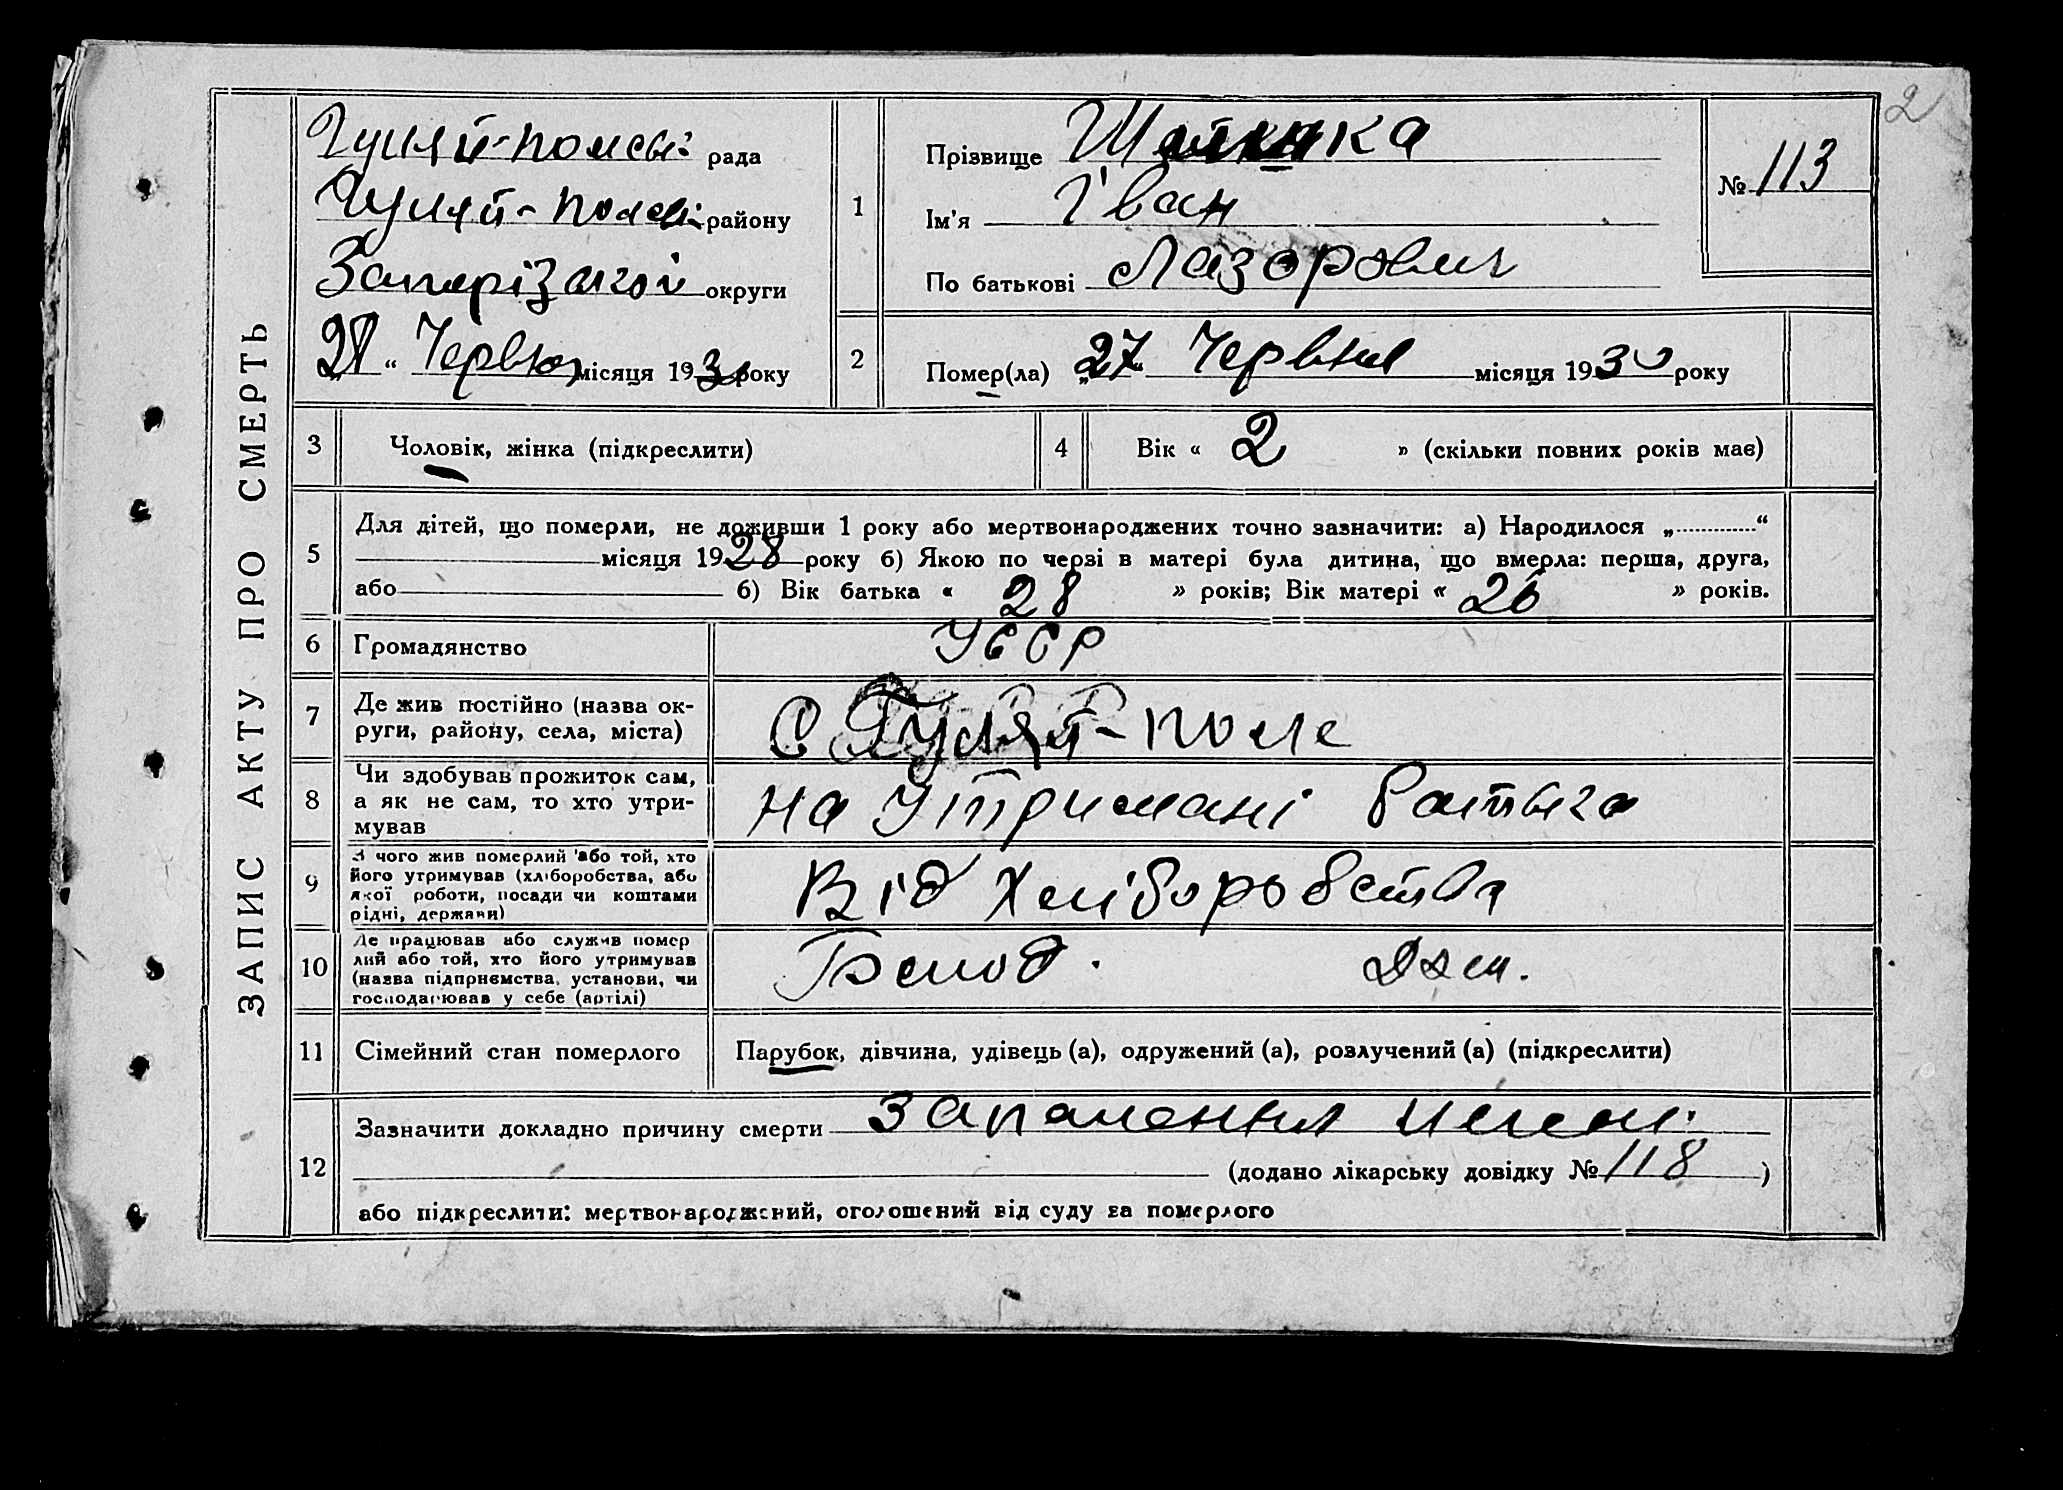 2
ЗАПИС АКТУ ПРО СМЕРТЬ
Гуляй-польсь: рада
Гуляй-польсь: району
Запорізької округи
„ “ Червню місяця 1930 року
1
Прізвище
Ім'я Іван
По батькові Лазорович
№ 113
2
Помер(ла) „27“ Червня місяця 1930 року
3
Чоловік, жінка (підкреслити)
4
Вік « 2 » (скільки повних років має)
5
Для дітей, що померли, не доживши 1 року або мертвонароджених точно зазначити: а) Народилося „ “
місяця 1928 року б) Якою по черзі в матері була дитина, що вмерла: перша, друга,
або б) Вік батька « 28 » років; Вік матері « 26 » років.
6
Громадянство
УССР
7
Де жив постійно (назва ок-
руги, району, села, міста)
С Гуляй-поле
8
Чи здобував прожиток сам,
а як не сам, то хто утри-
мував
на утримані батька
9
З чого жив померлий або той, хто
його утримував (хліборобства, або
якої роботи, посади чи коштами
рідні, держави)
Від Хліборобства
10
Де працював або служив помер
лий або той, хто його утримував
(назва підприємства, установи, чи
господарював у себе (артілі)
11
Сімейний стан померлого
Парубок, дівчина, удівець (а), одружений (а), розлучений (а) (підкреслити)
12
Зазначити докладно причину смерти Запалення легені.
(додано лікарську довідку № 118 )
або підкреслити: мертвонароджений, оголошений від суду за померлого